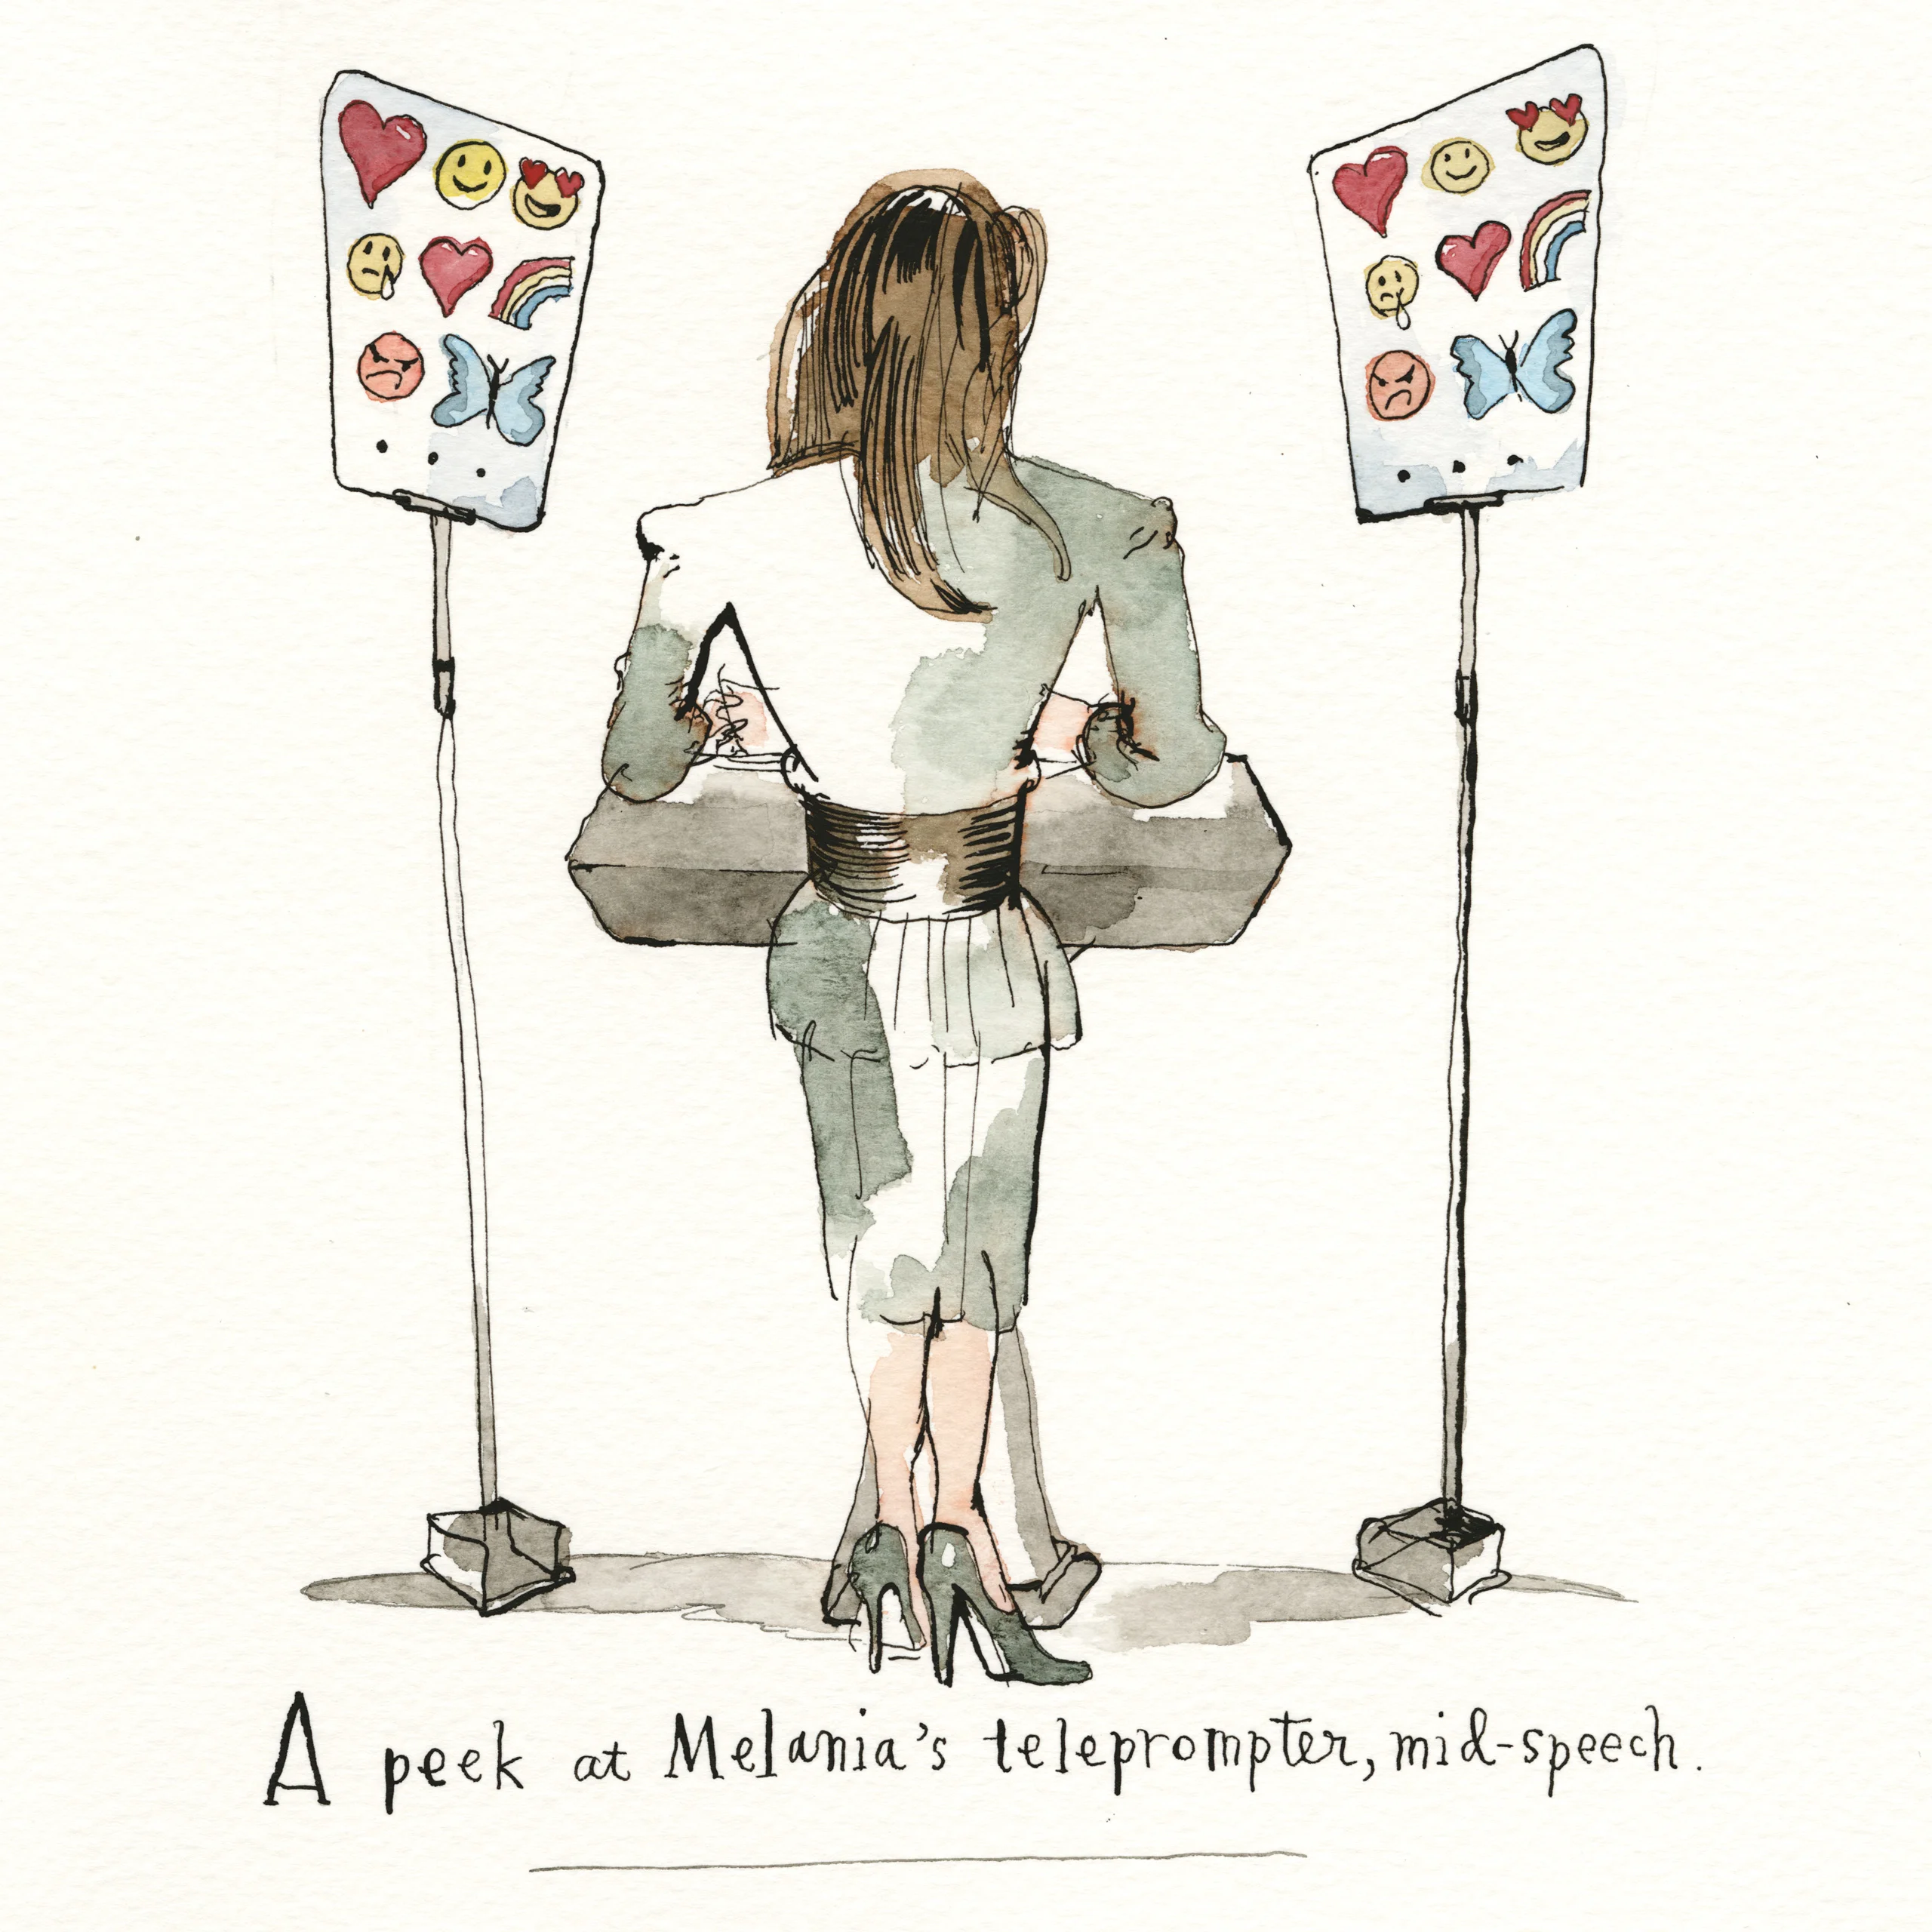 A peek at Melania's teleprompter, mid-speech.